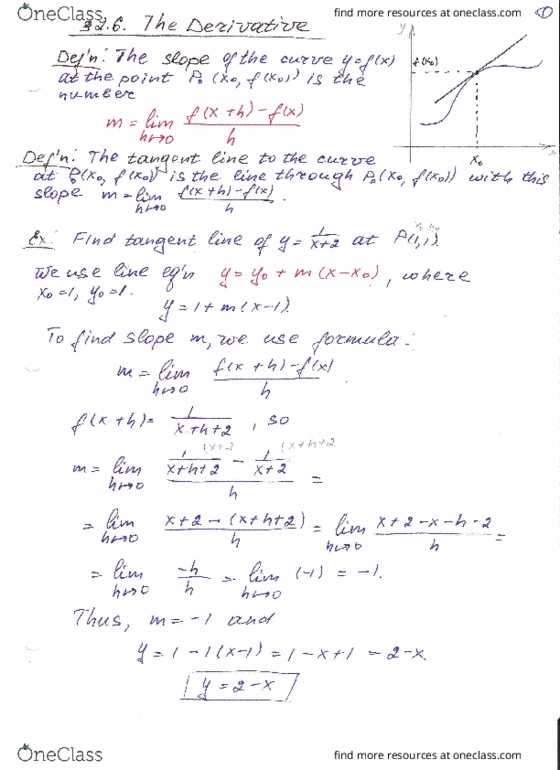 OneClass
find more resources at oneclass.com
1
§2.6. The Derivative
Def'n: The slope of the curve y=f(x)
at the point P₀(x₀, f(x₀)) is the
number
m = lim h→0 (f(x+h)-f(x))/h
y
f(x₀)
x₀
x
Def'n: The tangent line to the curve
at P₀(x₀, f(x₀)) is the line through P₀(x₀, f(x₀)) with this
slope m = lim h→0 (f(x+h)-f(x))/h.
Ex: Find tangent line of y = 1/(x+2) at P(1,1).
x₀ y₀
We use line eq'n y = y₀ + m(x-x₀), where
x₀=1, y₀=1.
y = 1+m(x-1).
To find slope m, we use formula:
m = lim h→0 (f(x+h)-f(x))/h
f(x+h) = 1/(x+h+2), so
m = lim h→0 (1/(x+h+2) (x+2 - 1/(x+2) (x+h+2)/h =
= lim h→0 (x+2-(x+h+2))/h = lim h→0 (x+2-x-h-2)/h =
= lim h→0 -h/h = lim h→0 (-1) = -1.
Thus, m=-1 and
y = 1-1(x-1) = 1-x+1 = 2-x.
y = 2-x
OneClass
find more resources at oneclass.com